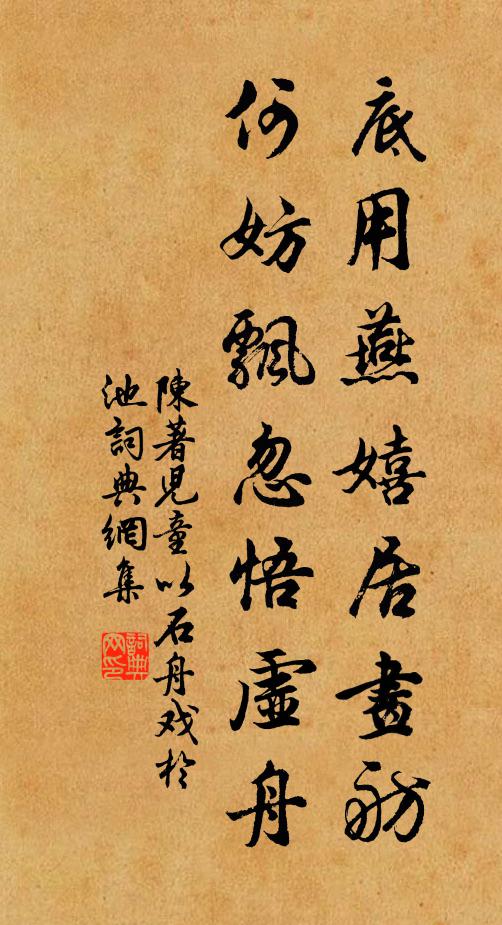 底用燕嬉居畫舫
何妨飄忽悟虛舟
陳著兒童以石舟戏於
池詞典網集
詞典网印